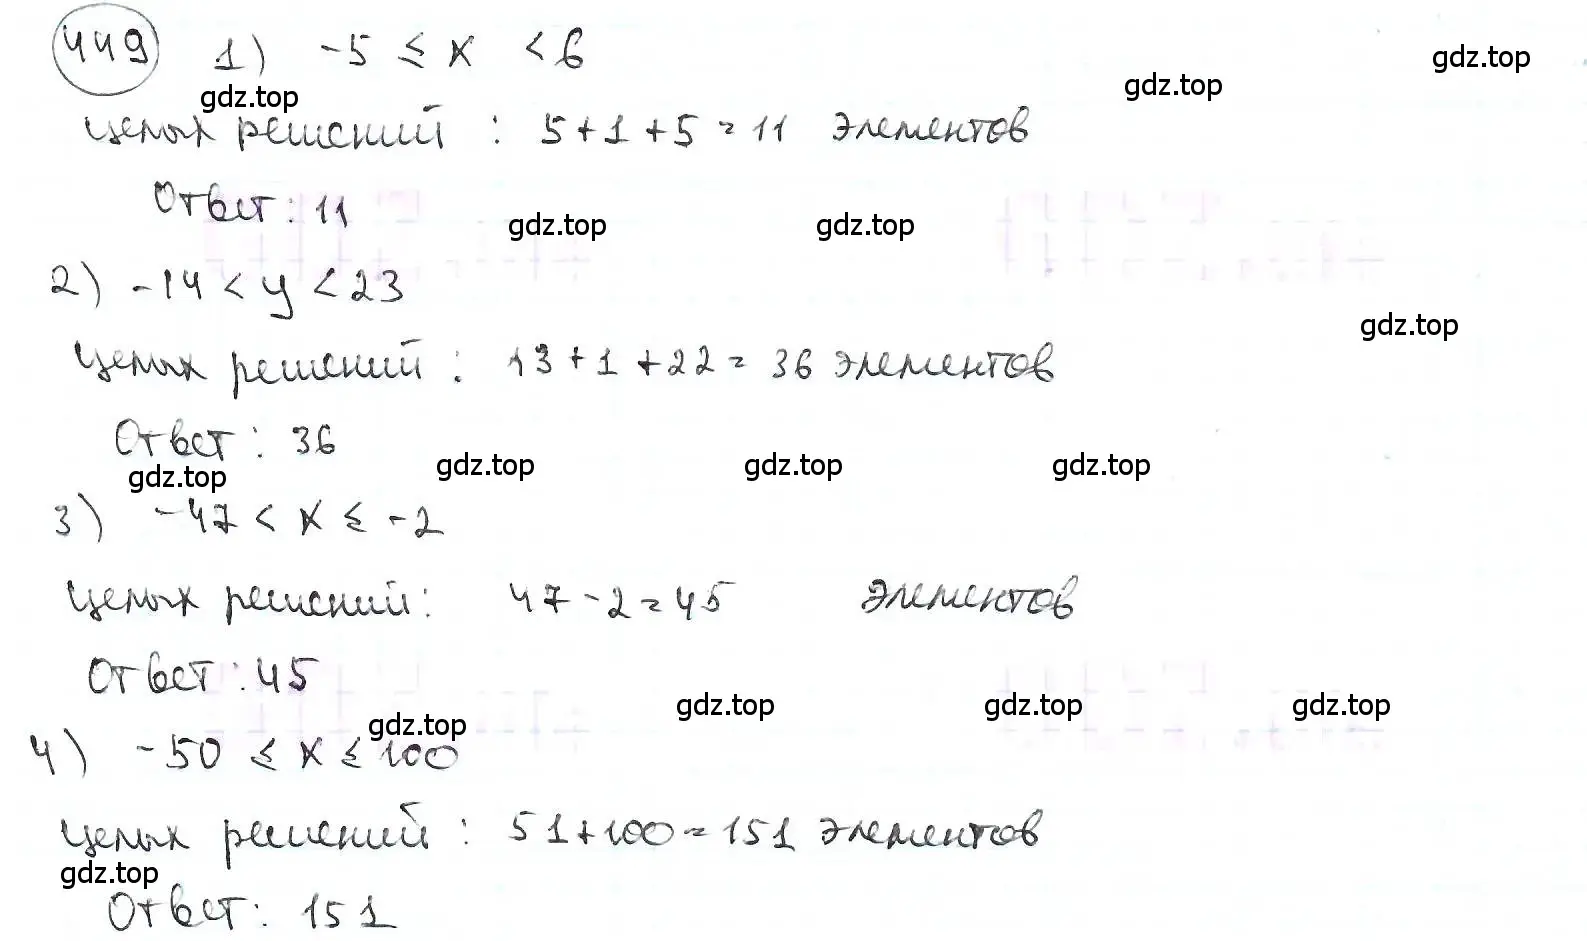 449 1) -5 ≤ x < 6
gdz.top gdz.top gdz.top
целых решений : 5+1+5=11 элементов
Ответ: 11
gdz.top gdz.top
2) -14 < y < 23
gdz.top
целых решений : 13+1+22=36 элементов
Ответ: 36
gdz.top gdz.top gdz.top gdz.top
3) -47 < x ≤ -2
целых решений: 47-2=45 элементов
Ответ: 45
gdz.top gdz.top gdz.top gdz.top
4) -50 ≤ x ≤ 100
целых решений : 51+100=151 элементов
gdz.top
Ответ: 151